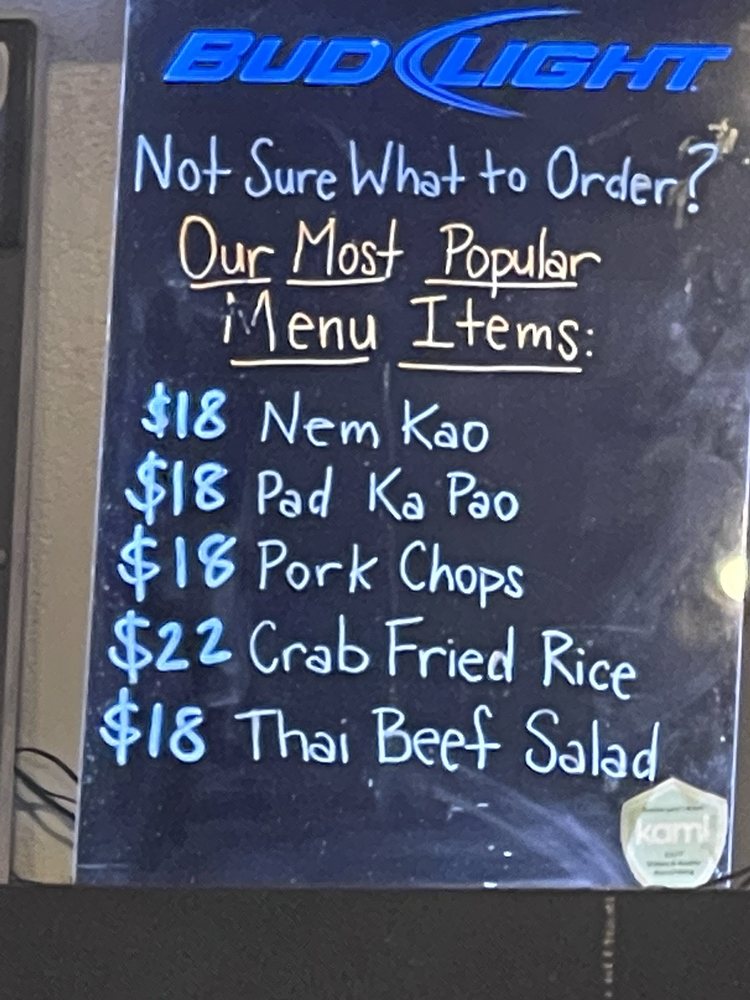 BUD LIGHT
Not Sure What to Order?
Our Most Popular
Menu Items:
$18 Nem Kao
$18 Pad Ka Pao
$18 Pork Chops
$22 Crab Fried Rice
$18 Thai Beef Salad
kami